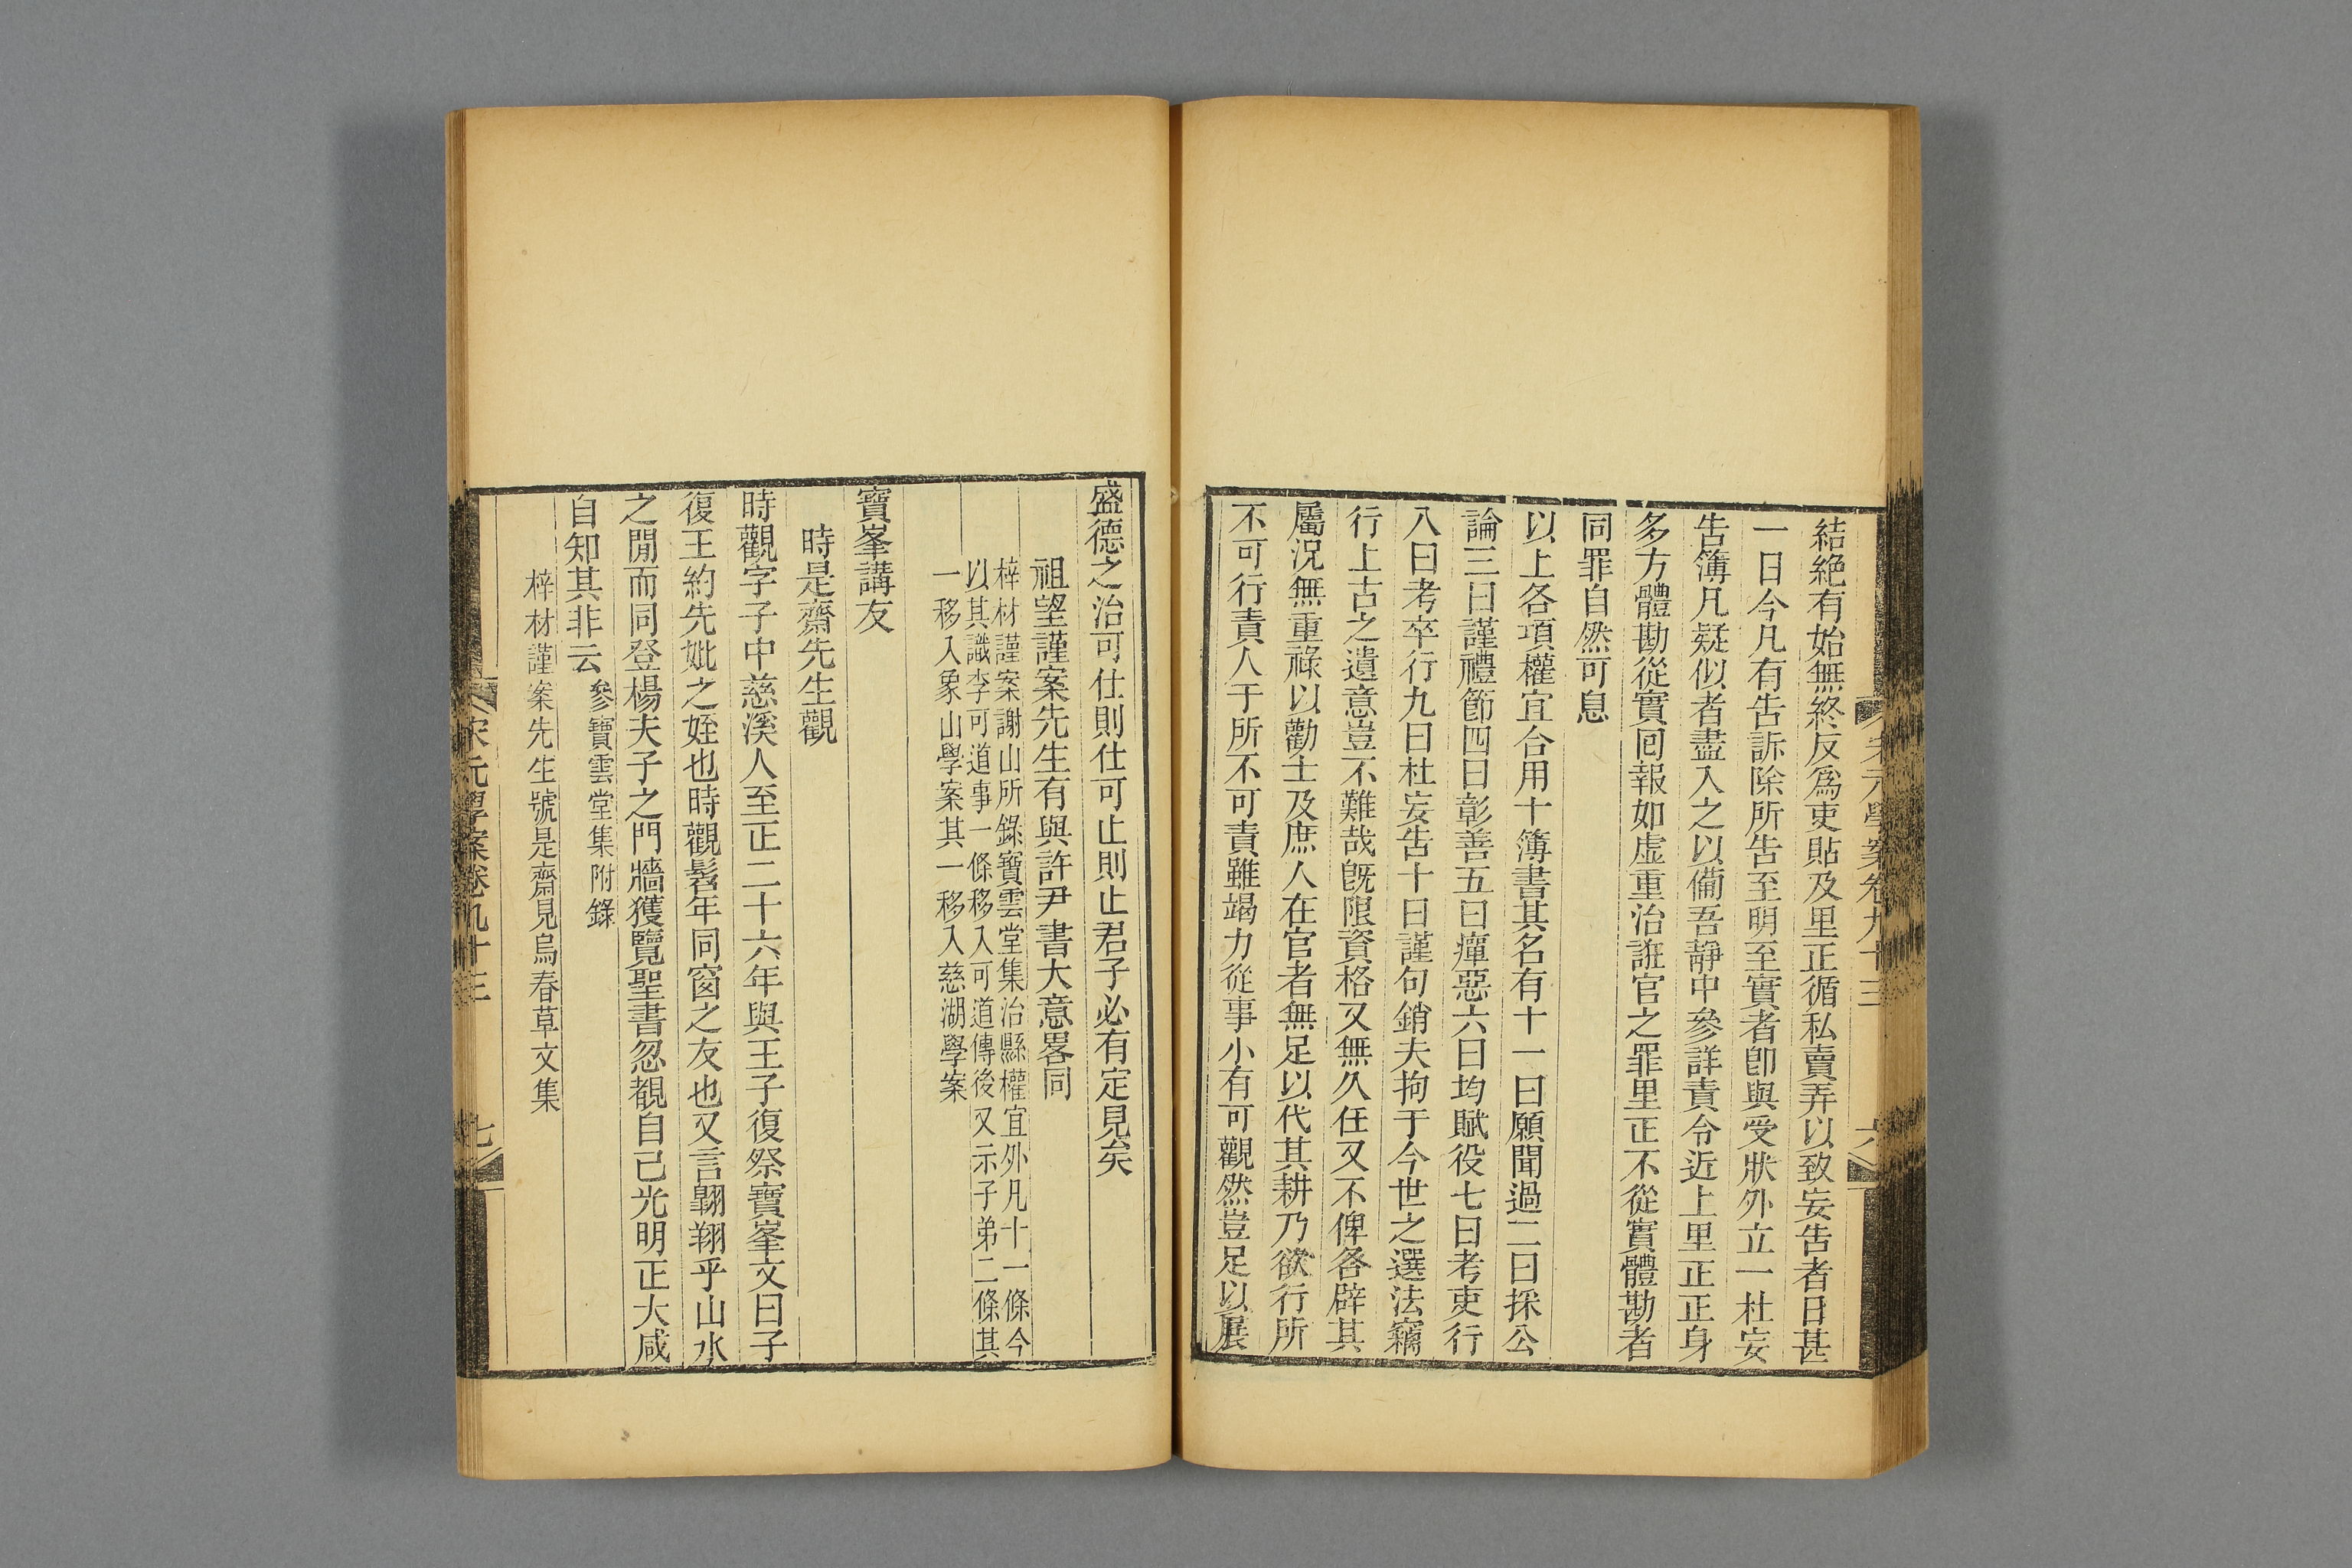 結絶有始無終反爲吏貼及里正循私賣弄以致妄告者日甚
一日今凡有告訴除所告至明至實者卽與受狀外立一杜妄
告簿凡疑似者盡入之以備吾靜中參詳責令近上里正正身
多方體勘從實囘報如虚重治誑官之罪里正不從實體勘者
同罪自然可息
以上各項權宜合用十簿書其名有十一曰願聞過二曰採公
論三曰謹禮節四曰彰善五曰癉惡六曰均賦役七曰考吏行
八曰考卒行九曰杜妄告十曰謹句銷夫拘于今世之選法竊
行上古之遺意豈不難哉旣限資格又無久任又不俾各辟其
屬況無重祿以勸士及庶人在官者無足以代其耕乃欲行所
不可行責人于所不可責雖竭力從事小有可觀然豈足以展
宋元學案卷九十三
六
盛德之治可仕則仕可止則止君子必有定見矣
祖望謹案先生有與許尹書大意畧同
梓材謹案謝山所錄寶雲堂集治縣權宜外凡十一條今
以其識李可道事一條移入可道傳後又示子弟二條其
一移入象山學案其一移入慈湖學案
寶峯講友
時是齋先生觀
時觀字子中慈溪人至正二十六年與王子復祭寶峯文曰子
復王約先妣之姪也時觀髫年同窗之友也又言翺翔乎山水
之閒而同登楊夫子之門牆獲覽聖書忽覩自己光明正大咸
自知其非云參寶雲堂集附錄
梓材謹案先生號是齋見烏春草文集
宋元學案卷九十三
七